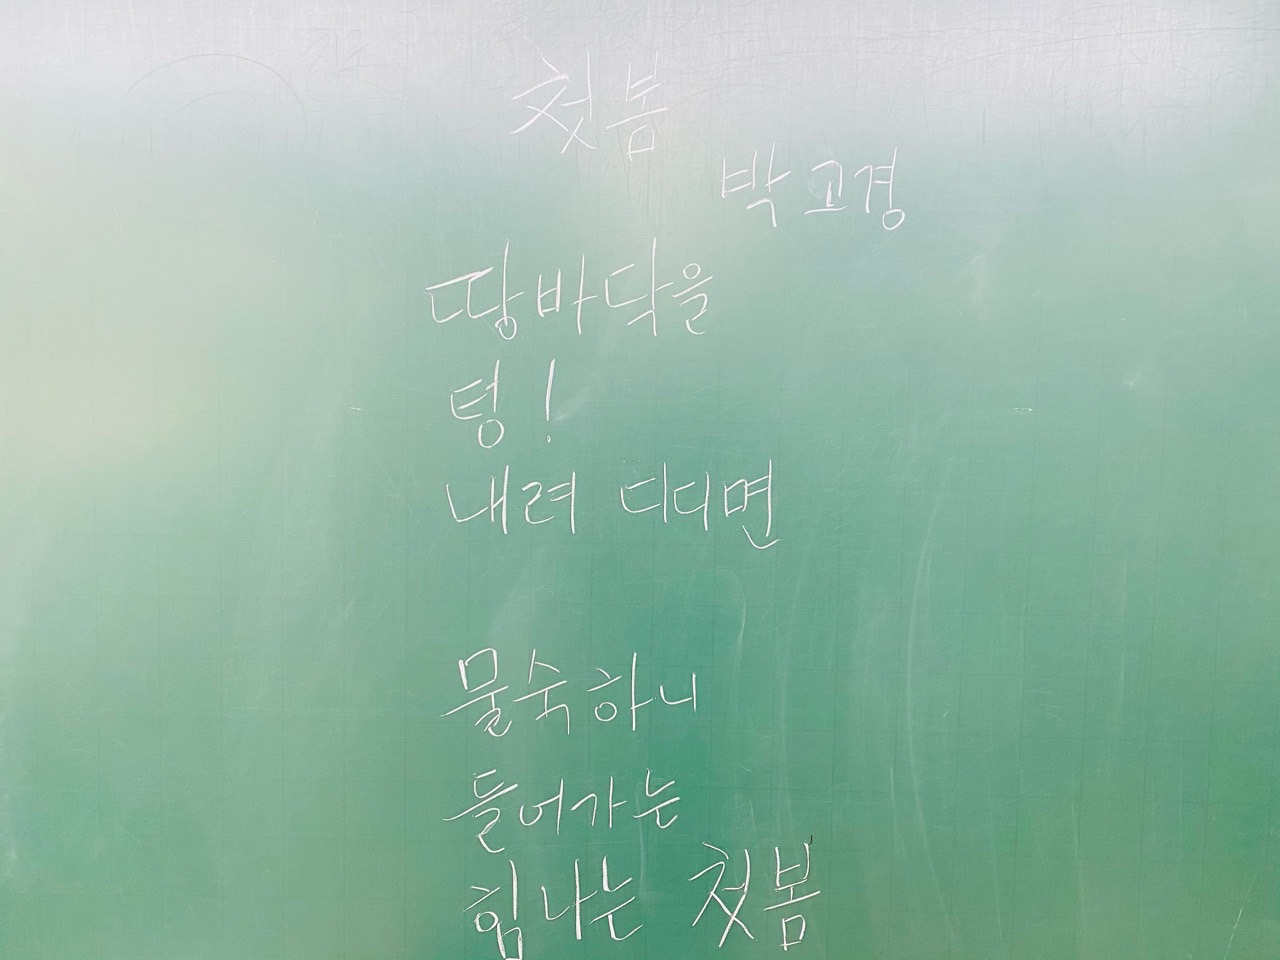 첫봄
박고경
땅바닥을
텅!
내려 디디면
물숙하니
들어가는
힘나는 첫봄